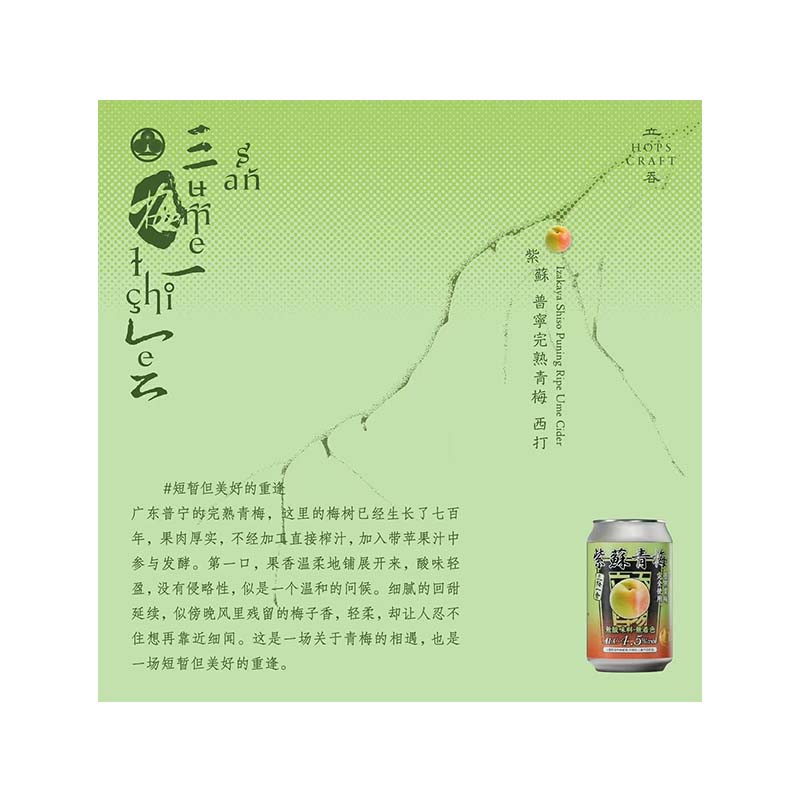 三梅一会
san
ume
ichi
e
立
HOPS
CRAFT
吞
紫蘇 普寧完熟青梅 西打
Izakaya Shiso Puning Ripe Ume Cider
#短暂但美好的重逢
广东普宁的完熟青梅，这里的梅树已经生长了七百
年，果肉厚实，不经加工直接榨汁，加入带苹果汁中
参与发酵。第一口，果香温柔地铺展开来，酸味轻
盈，没有侵略性，似是一个温和的问候。细腻的回甜
延续，似傍晚风里残留的梅子香，轻柔，却让人忍不
住想再靠近细闻。这是一场关于青梅的相遇，也是
一场短暂但美好的重逢。
紫蘇青梅
三梅一會
完全使用
無酸味料·無着色
ALC.4.5%vol